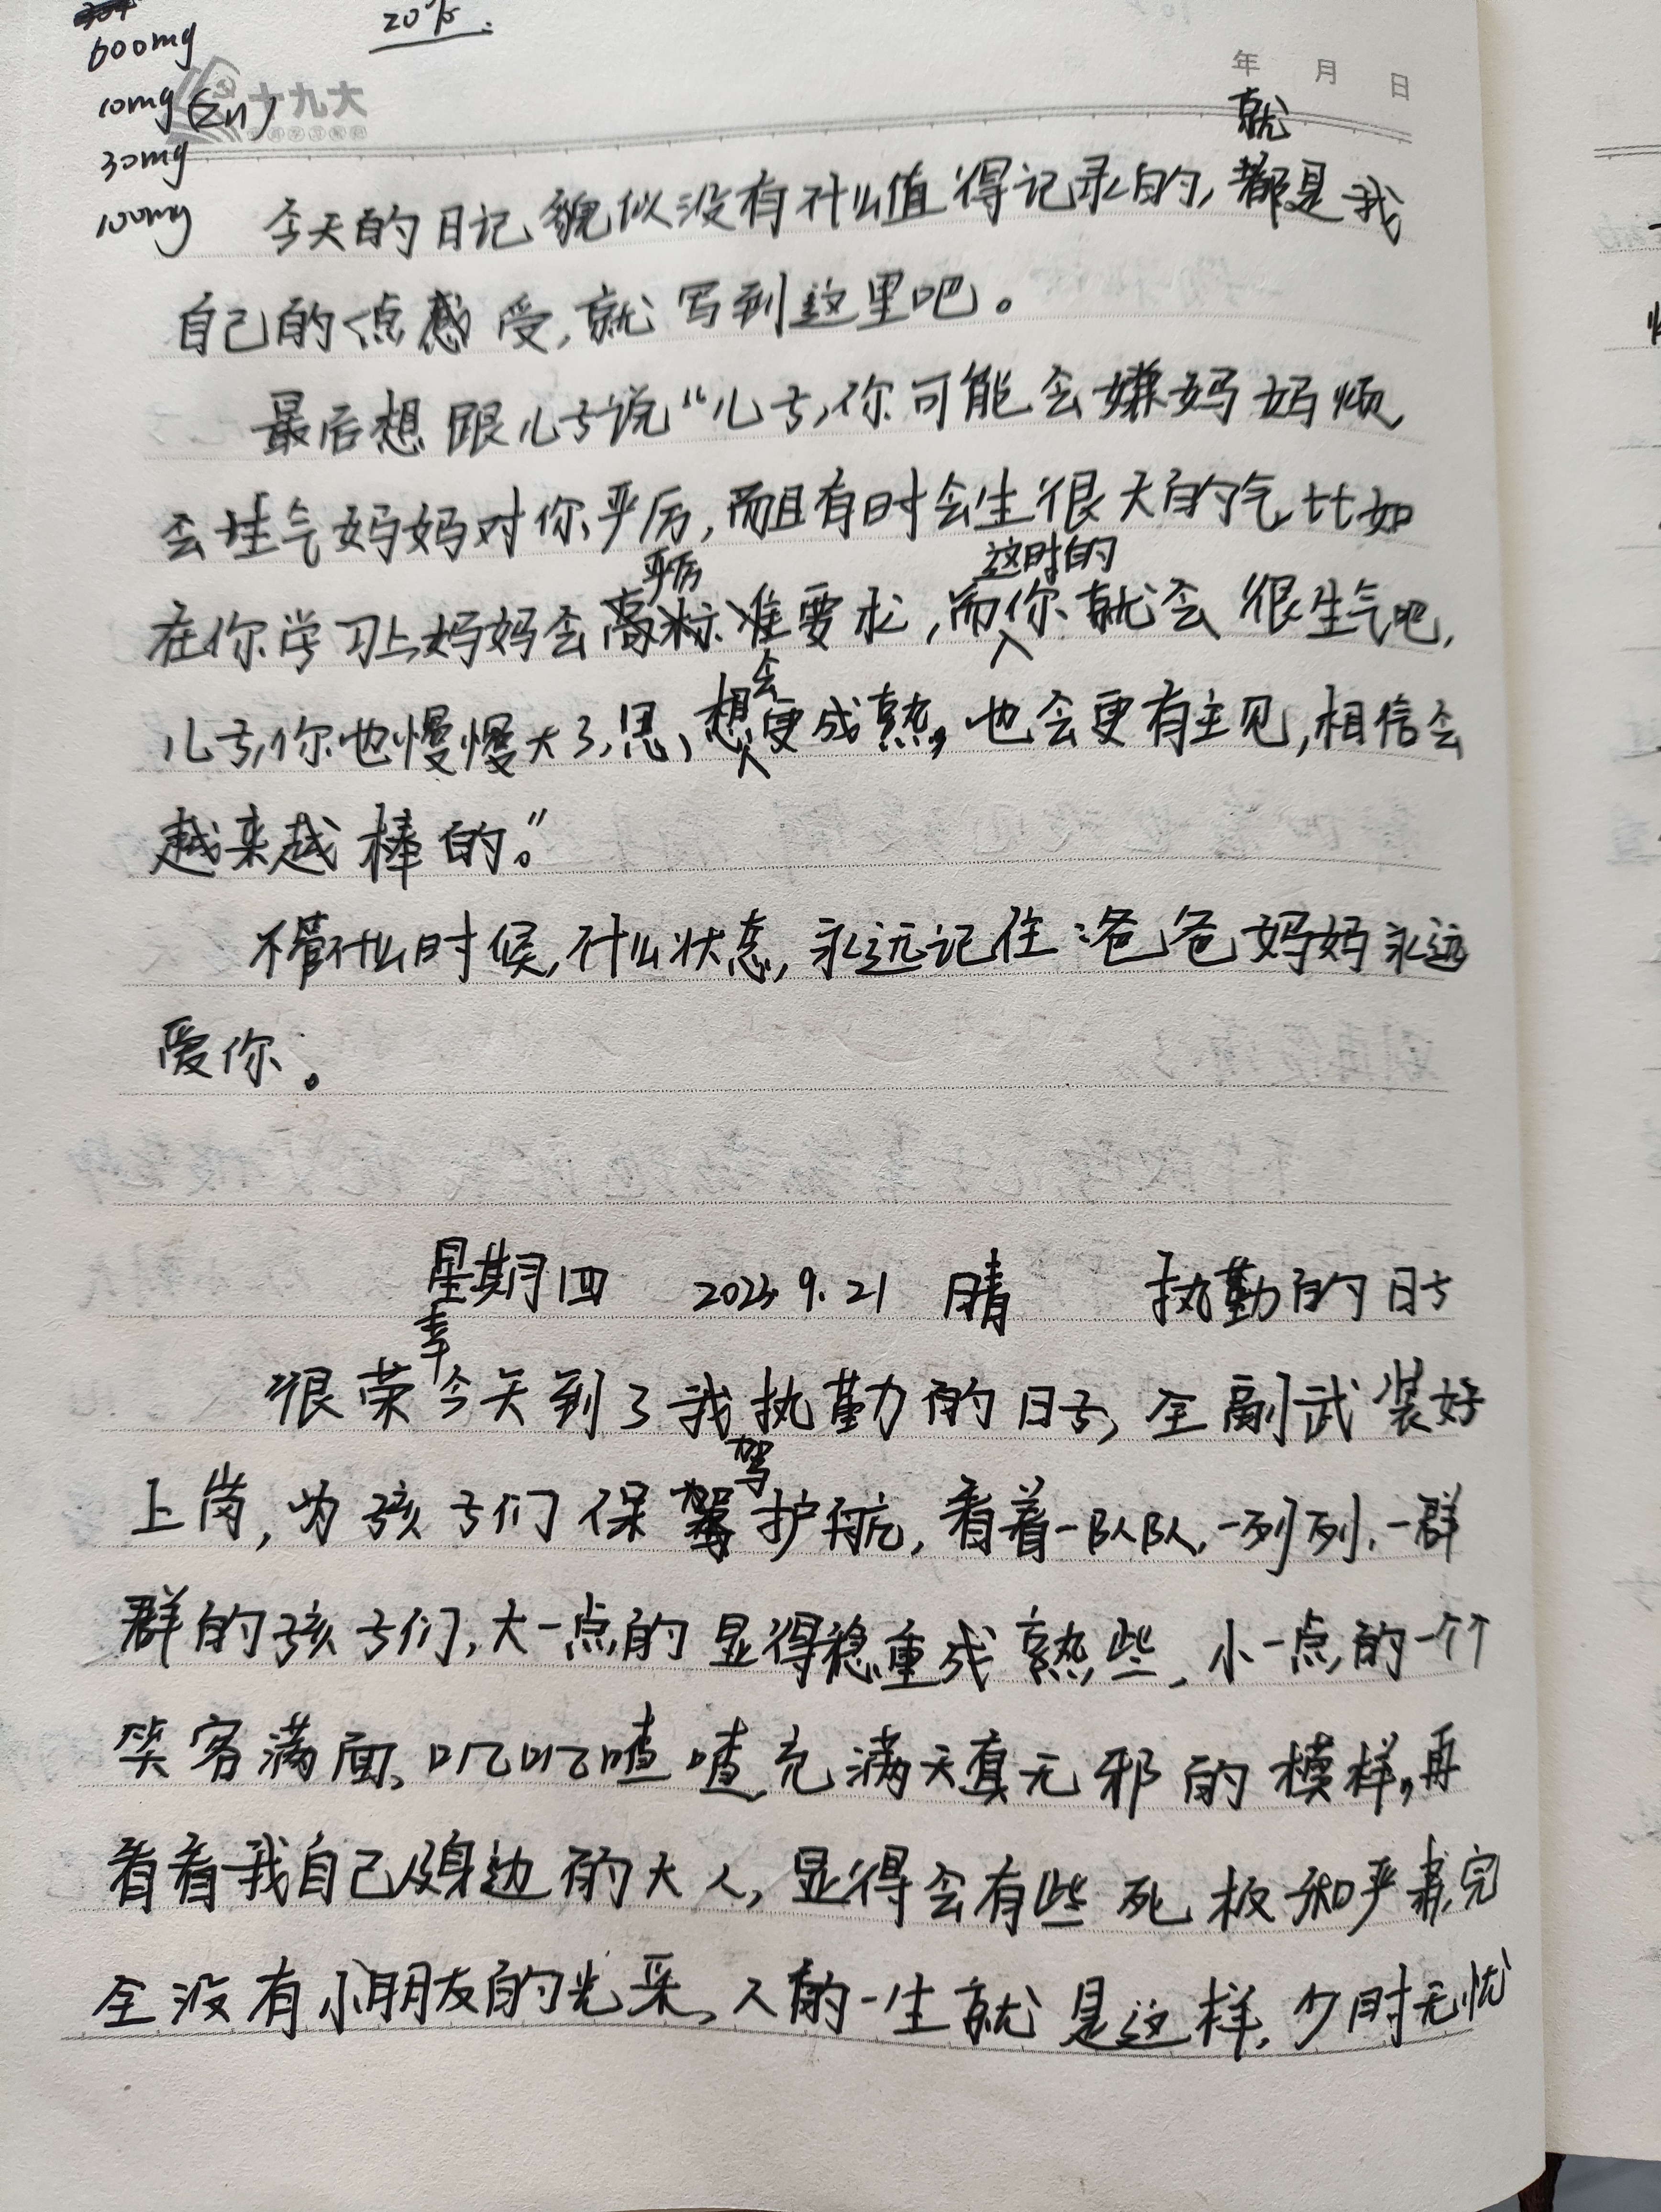 20%.
600mg
10mg(Zn)
30mg
100mg
十九大
年 月 日
就
今天的日记貌似没有什么值得记录的,都是我
自己的点感受,就写到这里吧。
最后想跟儿子说“儿子,你可能会嫌妈妈烦,
会生气妈妈对你严厉,而且有时会生很大的气,比如
严厉 这时的
在你学习上妈妈会高标准要求,而你就会很生气吧,
会
儿子,你也慢慢大了,思想更成熟,也会更有主见,相信会
越来越棒的。”
不管什么时候,什么状态,永远记住:爸爸妈妈永远
爱你。
星期四 2023.9.21 晴 执勤的日子
幸
很荣今天到了我执勤的日子,全副武装好
驾
上岗,为孩子们保驾护航,看着一队队,一列列,一群
群的孩子们,大一点的显得稳重成熟些,小一点的一个个
笑容满面,叽叽喳喳充满天真无邪的模样,再
看看我自己及身边的大人,显得会有些死板和严肃,完
全没有小朋友的光采,人的一生就是这样,少时无忧